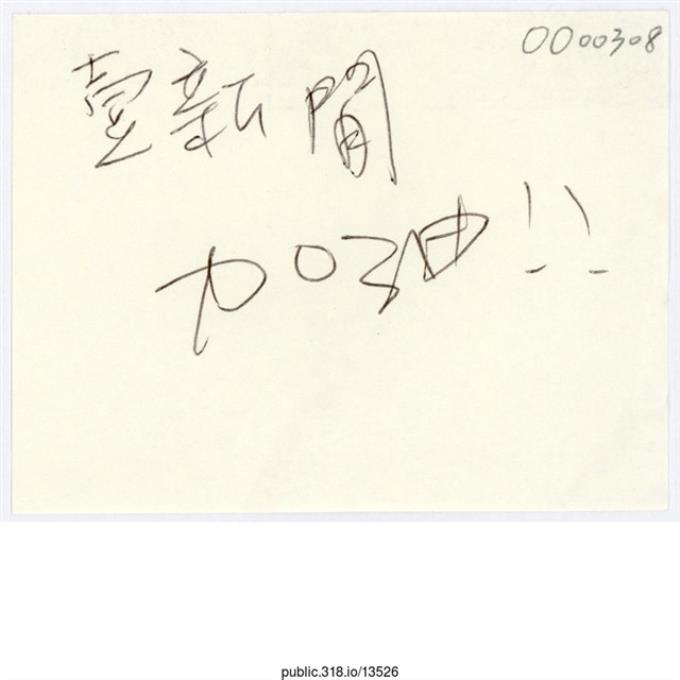 0000308
壹新聞
加油!!
public.318.io/13526